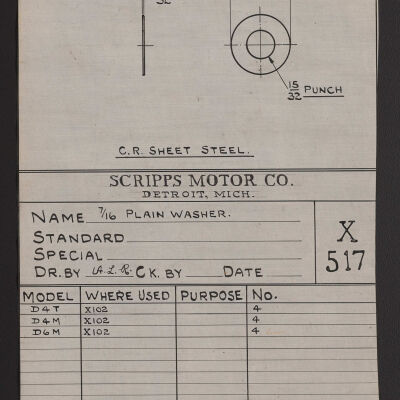 32
15
32 PUNCH
C.R. SHEET STEEL.
SCRIPPS MOTOR CO.
DETROIT, MICH.
NAME 7/16 PLAIN WASHER.
STANDARD
SPECIAL
DR. BY A.L.R. CK. BY DATE
X
517
MODEL WHERE USED PURPOSE NO.
D4T X102 4
D4M X102 4
D6M X102 4